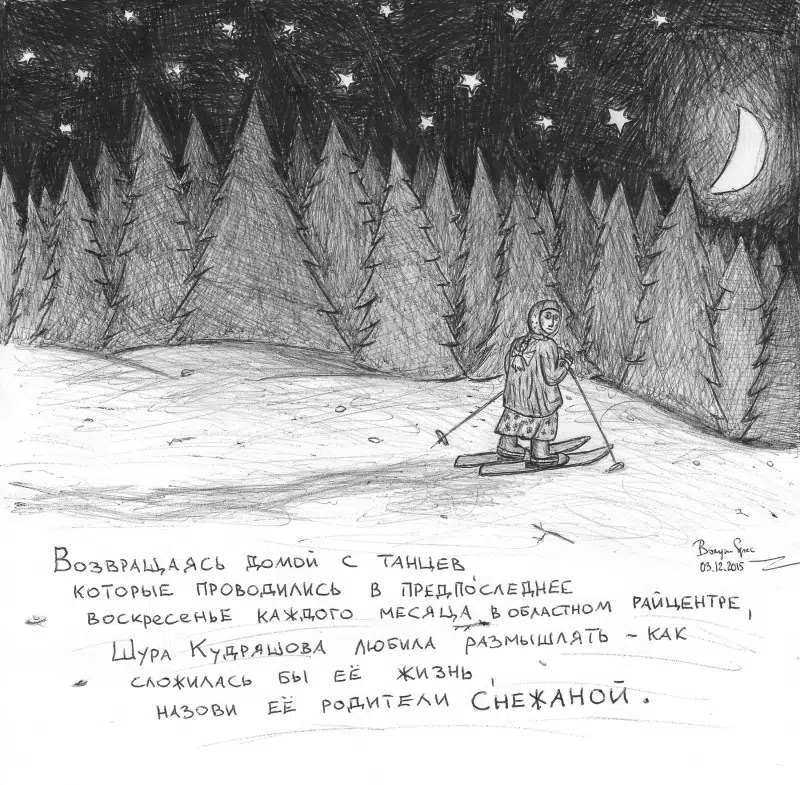 Возвращаясь домой с танцев
которые проводились в предпоследнее
воскресенье каждого месяца в областном райцентре,
Шура Кудряшова любила размышлять - как
сложилась бы её жизнь,
назови её родители Снежаной.
03.12.2015